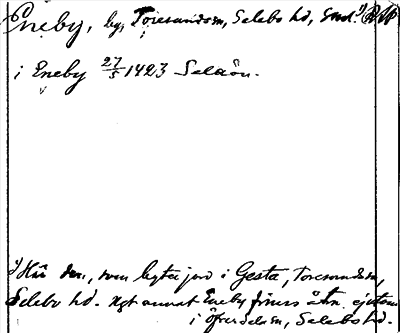 Eneby, by, Toresundsn, Selebo hd, Smdl. 1) RAP
i Eneby 27/5 1423 Selaön.
1) Här den, som byter jord i Gesta, Toresundsn,
Selebo hd. Ngt annat Eneby finnes åtm. ej utom
i Överselasn, Selebo hd.